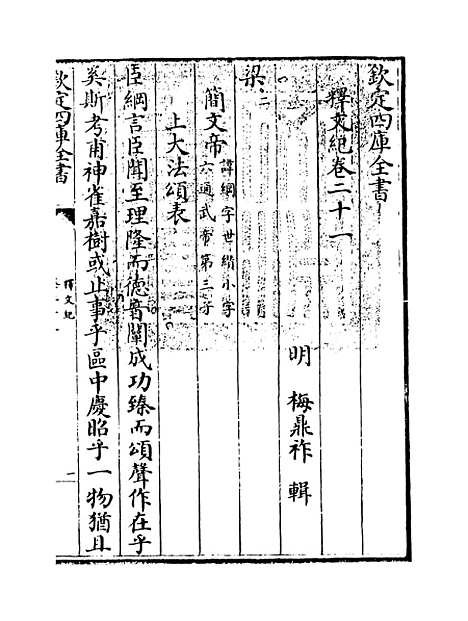 欽定四庫全書
釋文紀卷二十一
明 梅鼎祚 輯
梁二
簡文帝 諱綱字世纘小字
六通武帝第三子
上大法頌表
臣綱言臣聞至理隆而德音闡成功臻而頌聲作在乎
奚斯考甫神雀嘉樹或止事乎區中慶昭乎一物猶且
欽定四庫全書
釋文紀